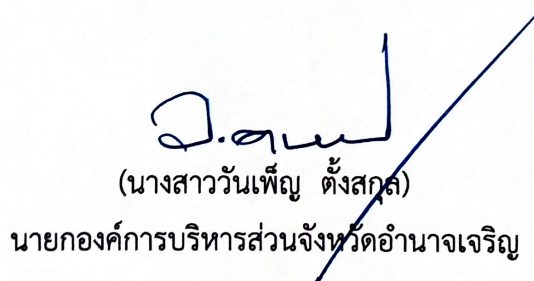 (นางสาววันเพ็ญ ตั้งสกุล)
นายกองค์การบริหารส่วนจังหวัดอำนาจเจริญ